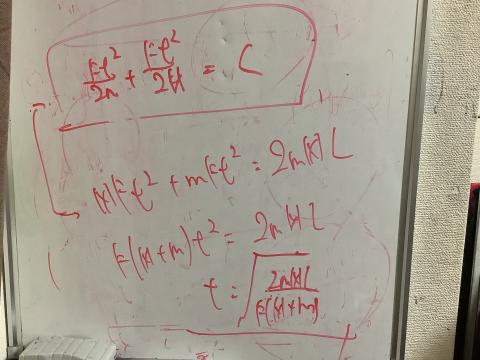 Ft²/2m + Ft²/2M = L
MFt² + mFt² = 2mML
F(M+m)t² = 2mML
t = √(2mML/F(M+m))